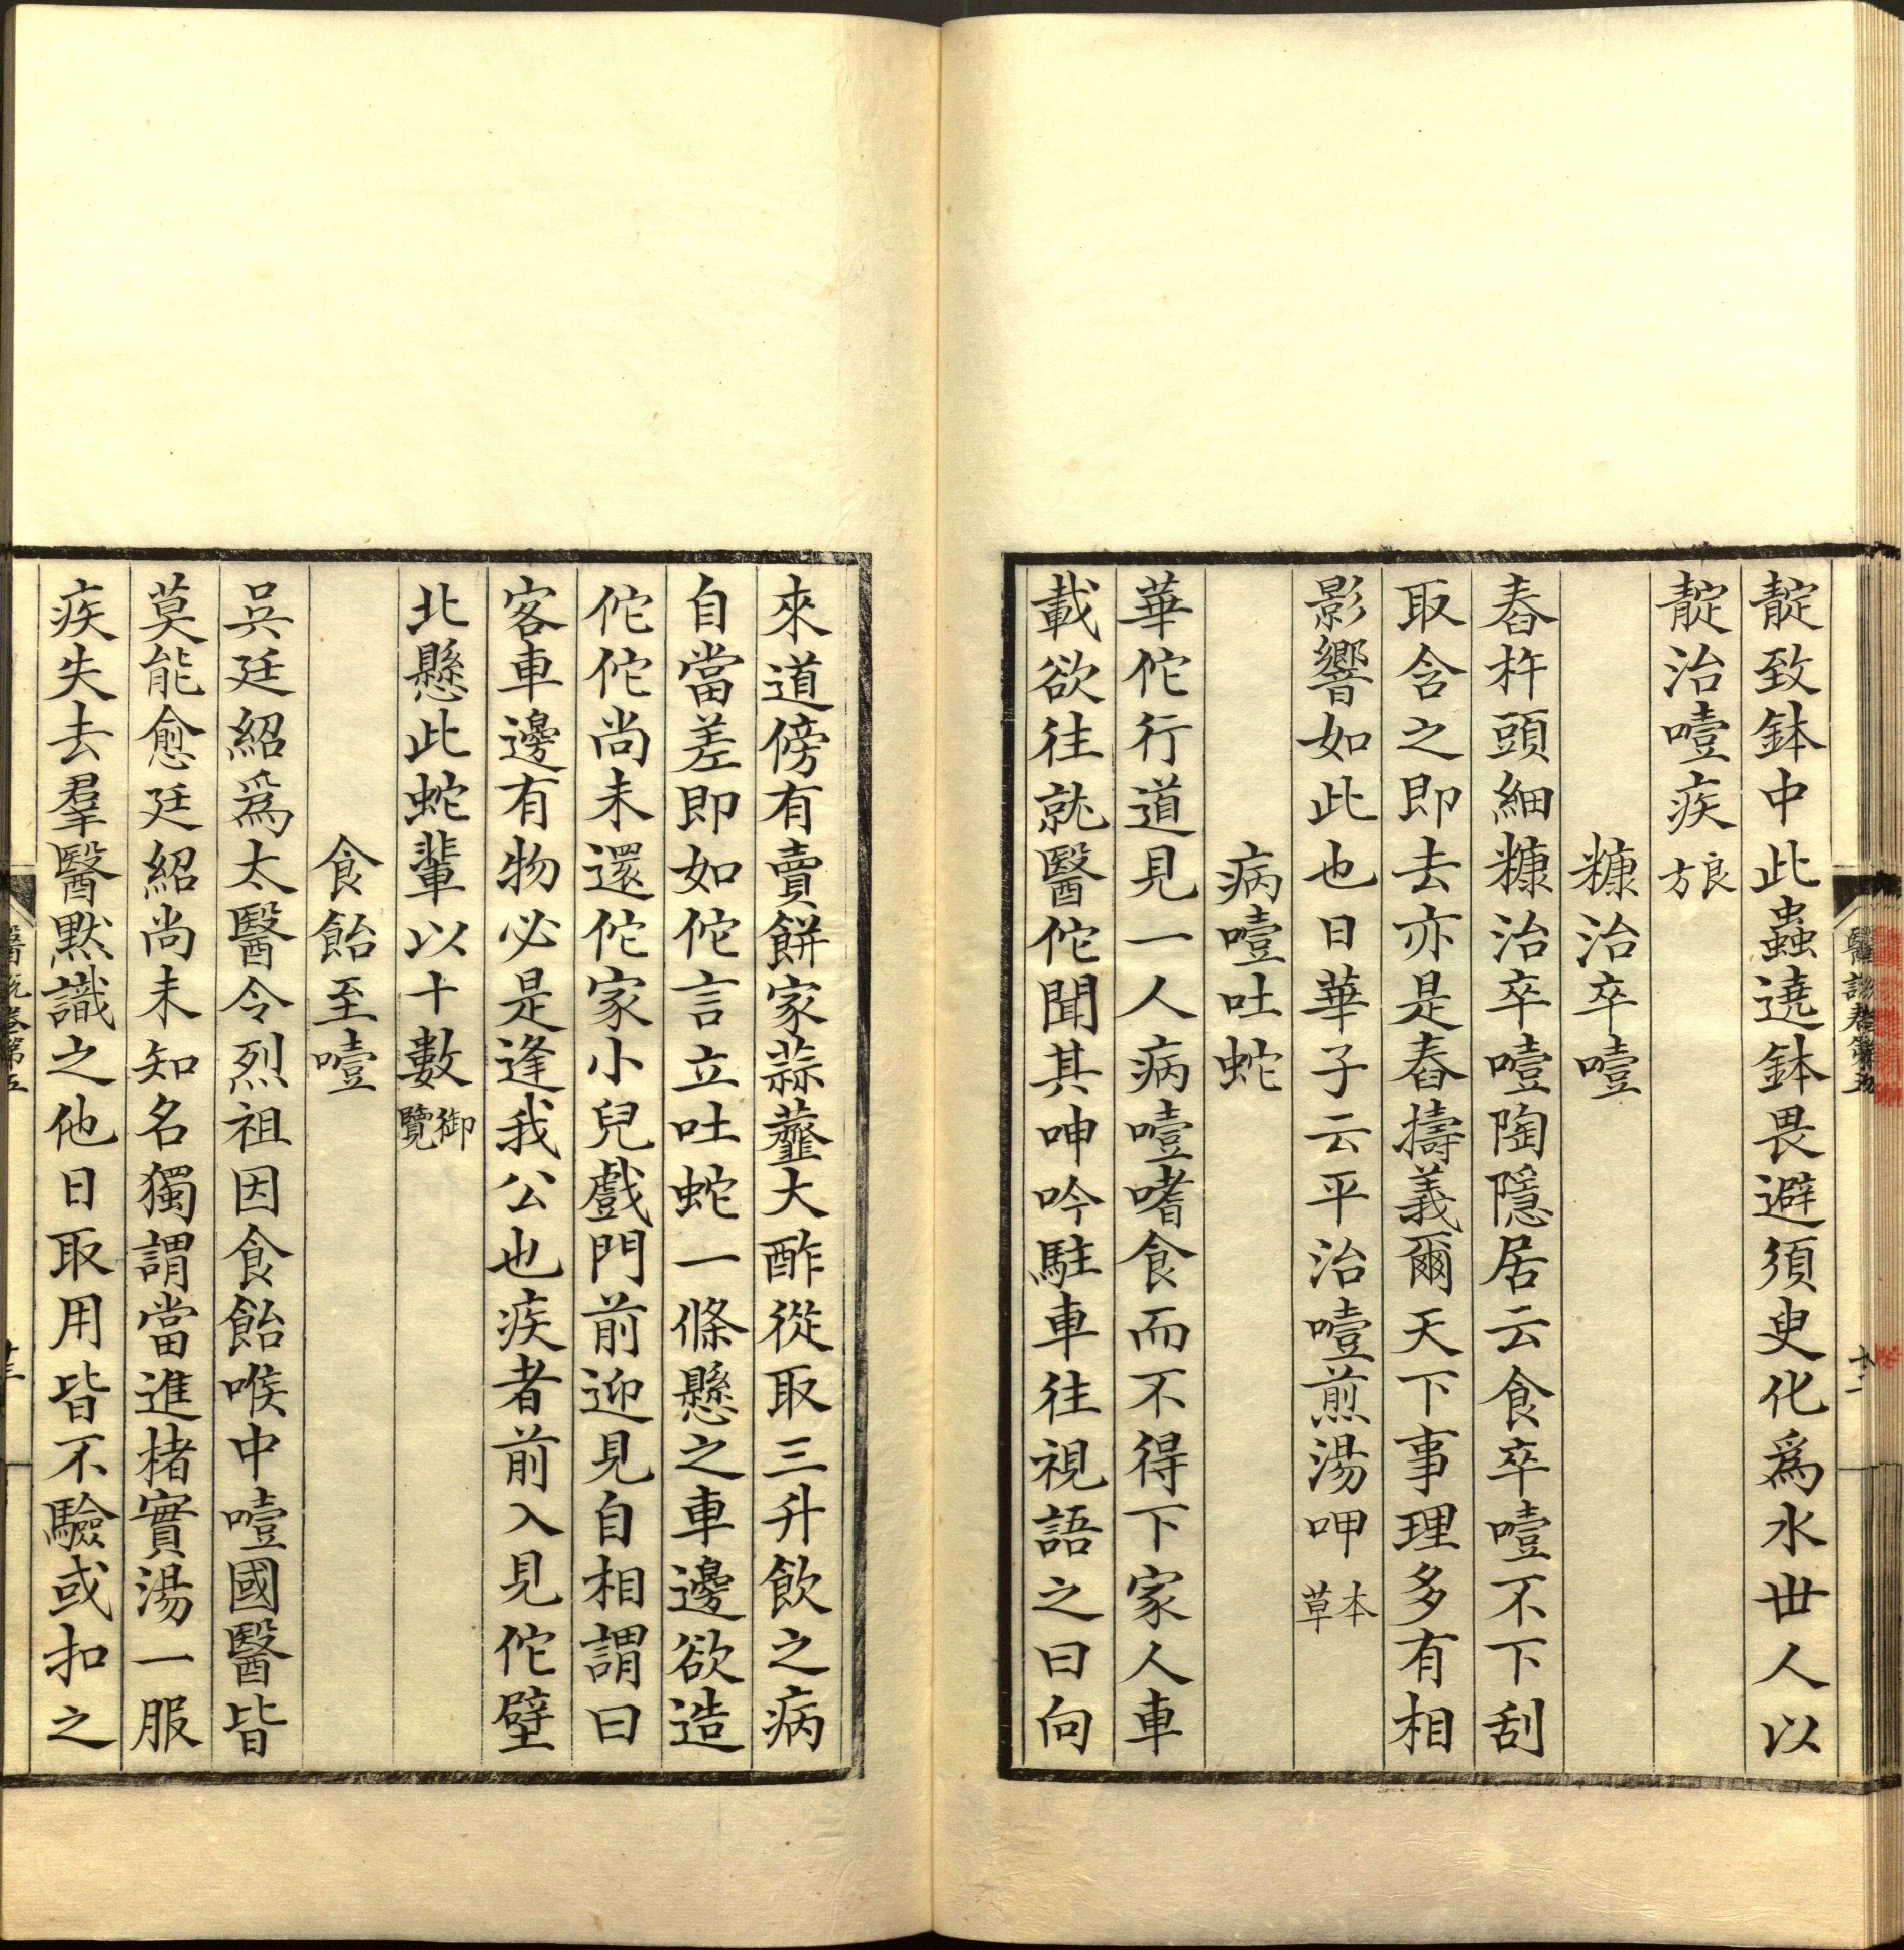 靛致鉢中此蟲遶鉢畏避須叟化爲水丗人以
靛治噎疾 良方
糠治卒噎
舂杵頭細糠治卒噎陶隱居云食卒噎不下刮
取含之即去亦是舂擣義爾天下事理多有相
影響如此也日華子云平治噎煎湯呷 本草
病噎吐蛇
華佗行道見一人病噎嗜食而不得下家人車
載欲往就醫佗聞其呻吟駐車往視語之曰向
來道傍有賣餅家蒜虀大酢從取三升飲之病
自當差即如佗言立吐蛇一條懸之車邊欲造
佗佗尚未還佗家小兒戲門前迎見自相謂曰
客車邊有物必是逢我公也疾者前入見佗壁
北懸此蛇輩以十數 御覽
食飴至噎
吳廷紹爲太醫令烈祖因食飴喉中噎國醫皆
莫能愈廷紹尚未知名獨謂當進楮實湯一服
疾失去羣醫默識之他日取用皆不驗或扣之
醫說卷第五
十二